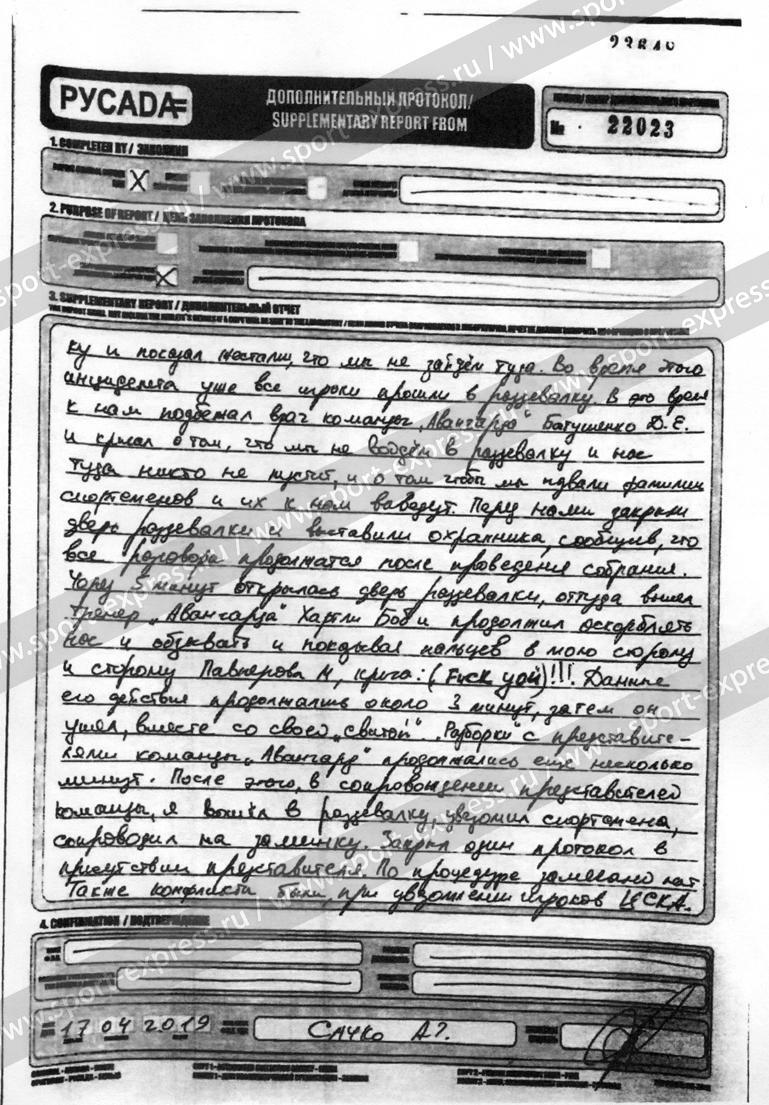 23640
РУСАДА
ДОПОЛНИТЕЛЬНЫЙ ПРОТОКОЛ/
SUPPLEMENTARY REPORT FROM
№ 22023
1. COMPLETED BY / ЗАПОЛНИЛ
2. PURPOSE OF REPORT / ЦЕЛЬ ЗАПОЛНЕНИЯ ПРОТОКОЛА
3. SUPPLEMENTARY REPORT / ДОПОЛНИТЕЛЬНЫЙ ОТЧЕТ
ку и показал жестами, что мы не зайдём туда. Во время этого
инцидента уже все игроки прошли в раздевалку. В это время
к нам подбежал врач команды „Авангарда" Батушенко Д.Е.
и кричал о том, что мы не войдём в раздевалку и нас
туда никто не пустит, и о том чтобы мы назвали фамилии
спортсменов и их к нам выведут. Перед нами закрыли
дверь раздевалки и выставили охранника, сообщив, что
все разговоры продолжатся после проведения собрания.
Через 5 минут открылась дверь раздевалки, оттуда вышел
тренер „Авангарда" Хартли Боб и продолжил оскорблять
нас и обзывать и показывал пальцев в мою сторону
и сторону Павперова М, крича: (Fuck you)!!! Данные
его действия продолжались около 3 минут, затем он
ушёл, вместе со своей „свитой". „Разборки" с представите-
лями команды „Авангард" продолжались ещё несколько
минут. После этого, в сопровождении представителей
команды, я вошёл в раздевалку, уведомил спортсмена,
сопроводил на заминку. Закрыл один протокол в
присутствии представителя. По процедуре замечаний нет.
Также конфликты были, при уведомлении игроков ЦСКА.
4. CONFIRMATION / ПОДТВЕРЖДЕНИЕ
17 04 2019
САЧКО А?.
www.sport-express.ru / www.sport-express.ru